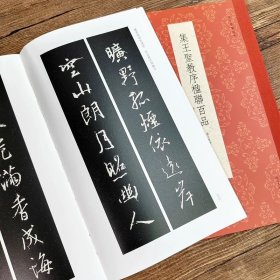 集王聖教序楹聯百品
曠野孤煙依遠岸
空山朗月照幽人
滿香成海